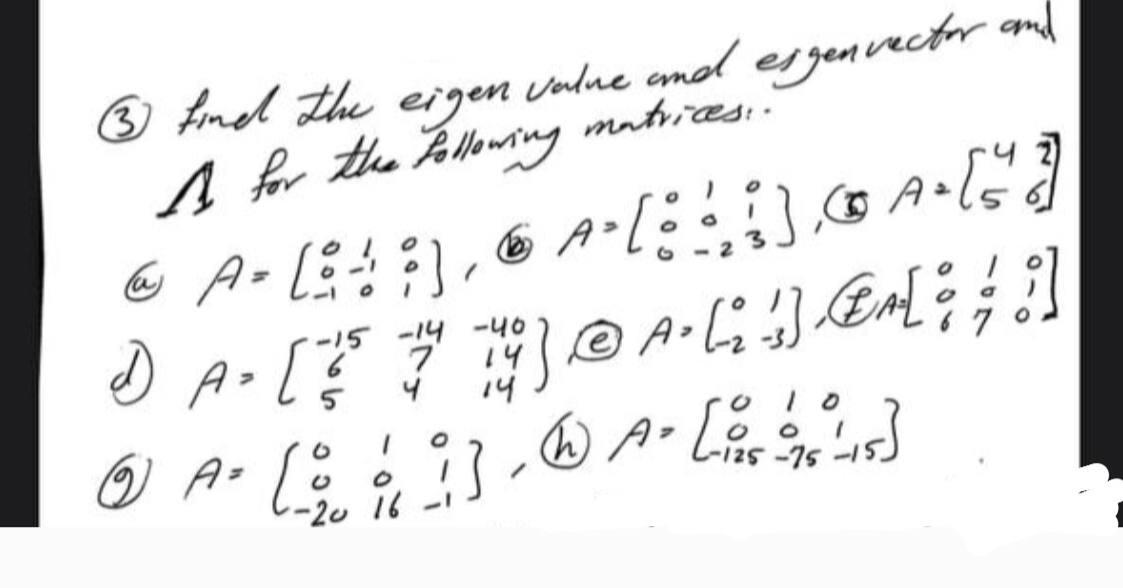 ③ find the eigen value and eigenvector and
Λ for the following matrices:.
ⓐ A = [0 1 0; 0 -1 0; -1 0 1], ⓑ A = [0 1 0; 0 0 1; 0 -2 3], ⓒ A = [4 2; 5 6]
d) A = [-15 -14 -40; 6 7 14; 5 4 14], ⓔ A = [0 1; -2 -3], ⓕ A = [0 1 0; 0 0 1; 6 7 0]
ⓖ A = [0 1 0; 0 0 1; -20 16 -1], ⓗ A = [0 1 0; 0 0 1; -125 -75 -15]